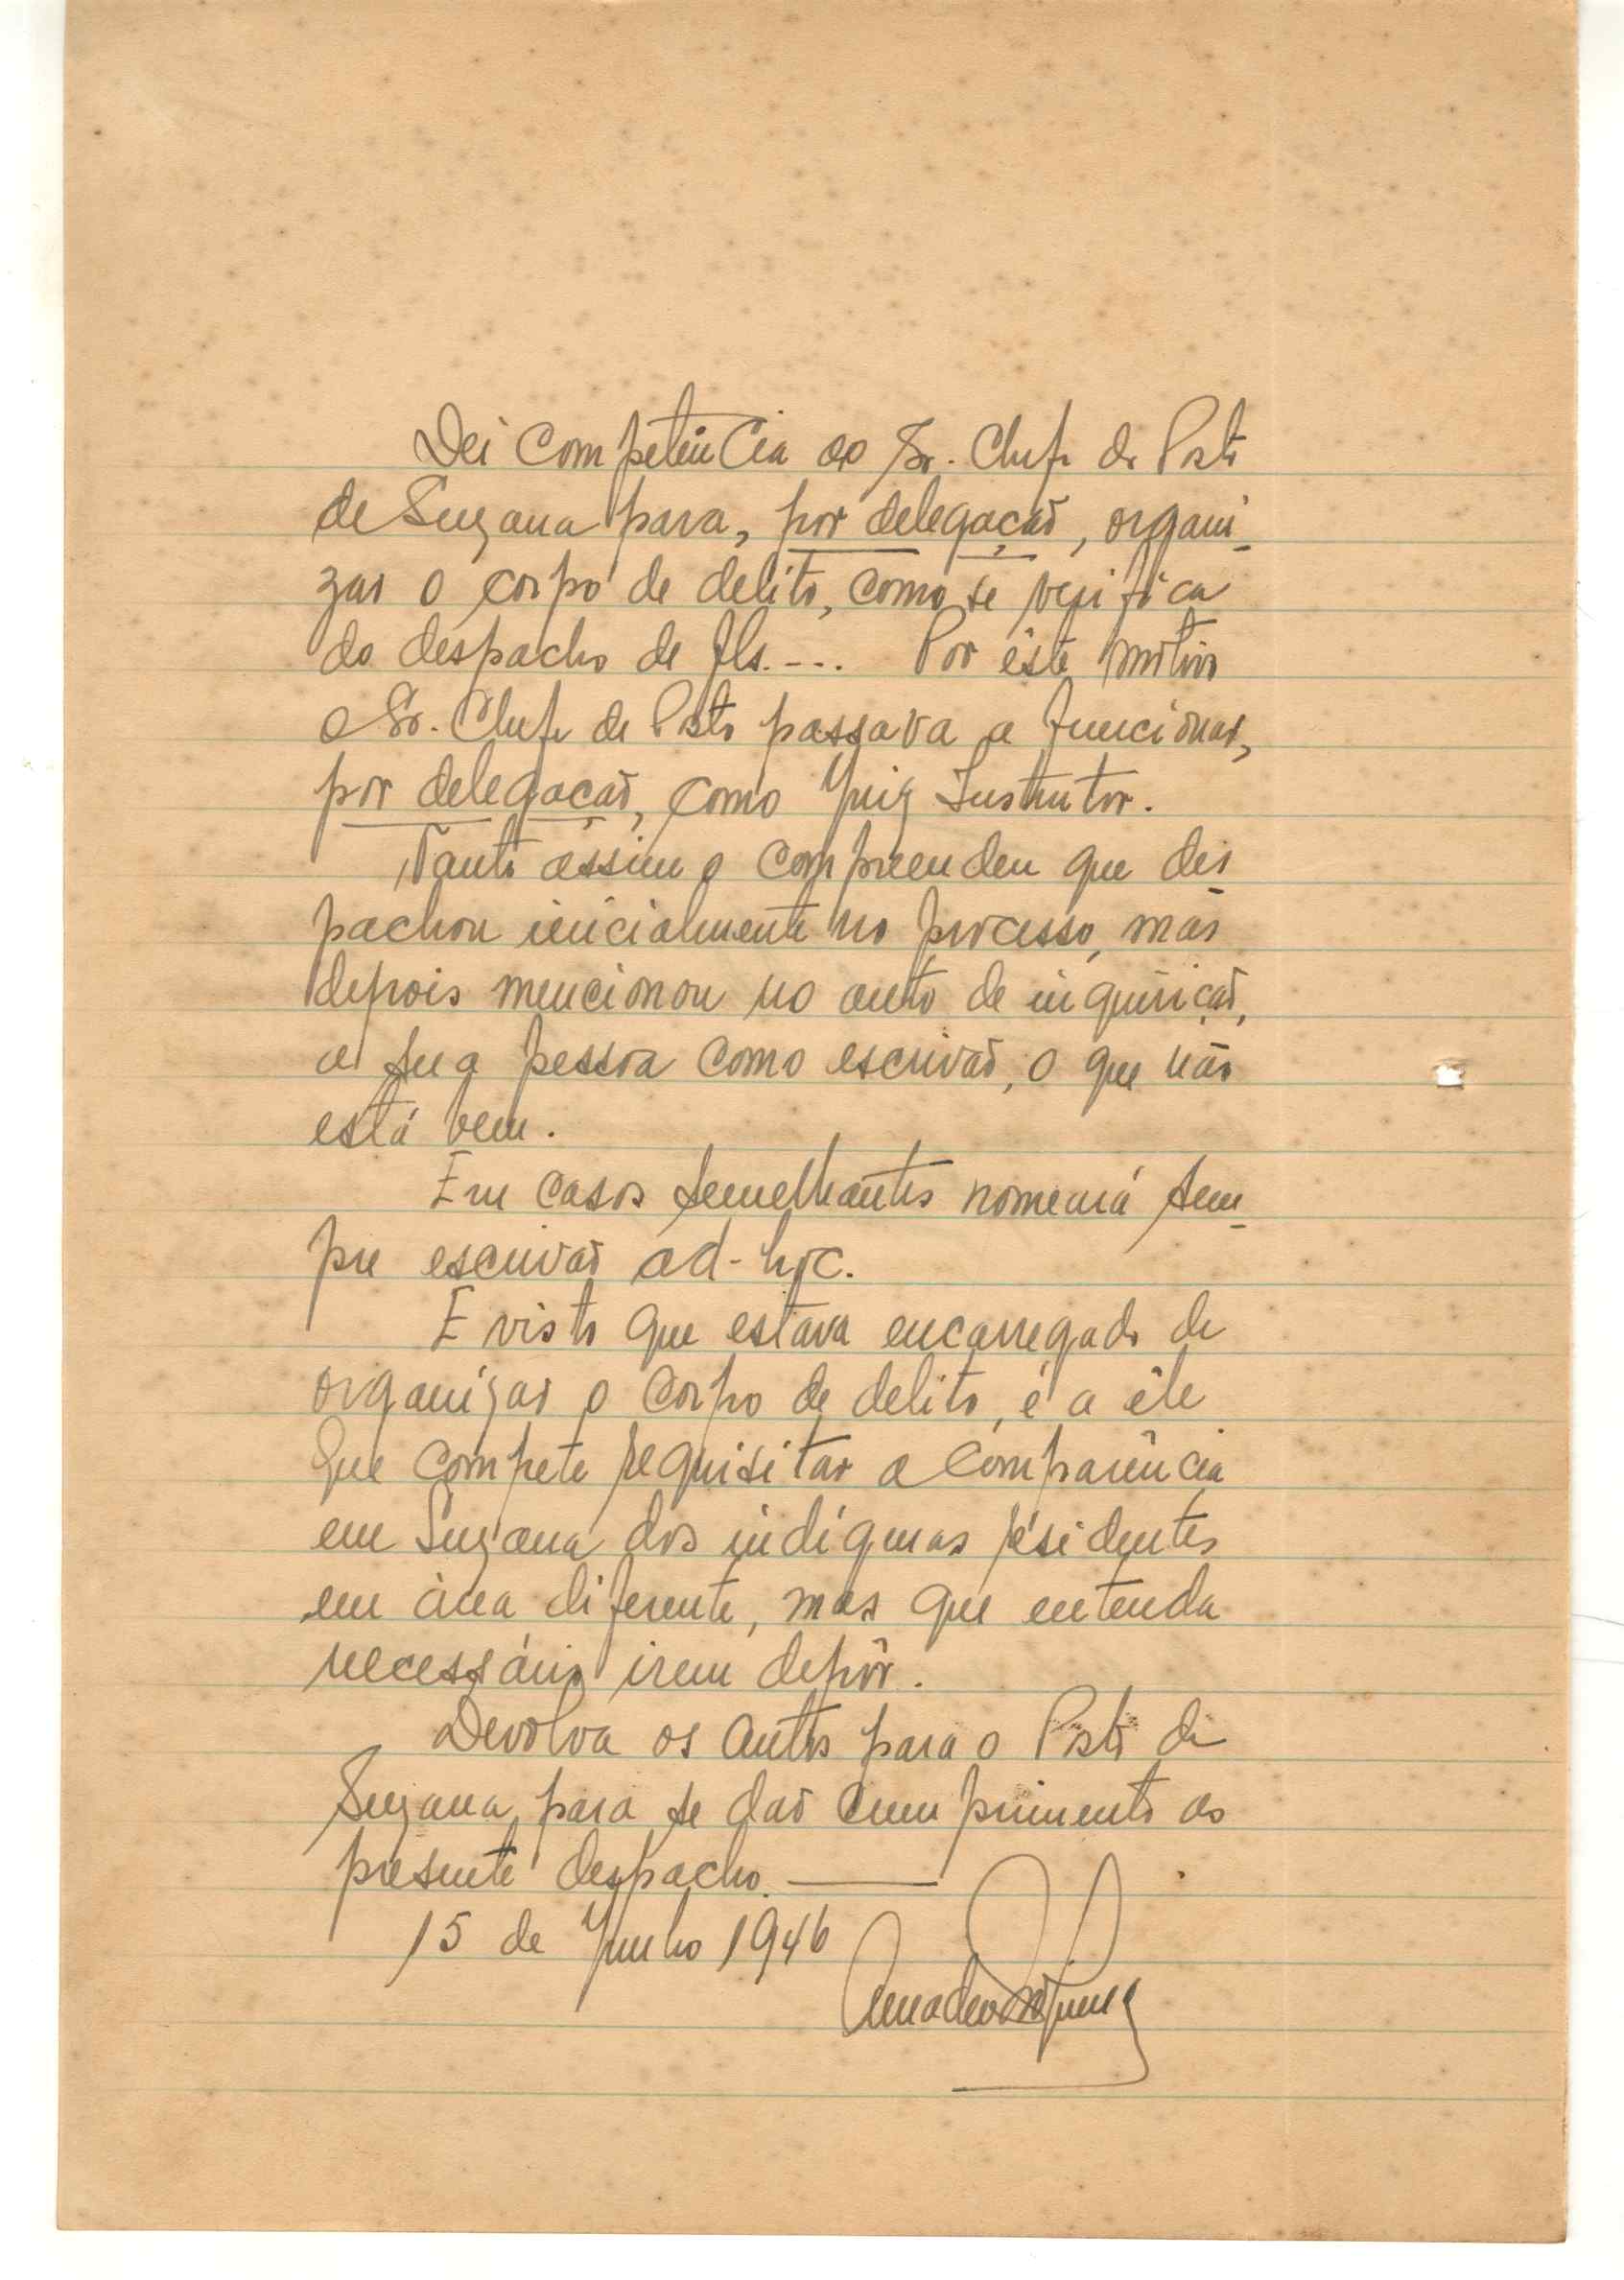 Dei Competência ao Sr. Chefe do Posto
de Suzana para, por delegação, organi-
zar o corpo de delito, como se verifica
do despacho de fls. -... Por êste motivo
o Sr. Chefe de Posto passava a funcionar,
por delegação, como Juiz Instrutor.
Tanto assim o compreendeu que des-
pachou inicialmente no processo, mas
depois mencionou no auto de inquirição,
a sua pessoa como escrivão, o que não
está bem.
Em casos semelhantes nomeará sem-
pre escrivão ad-hoc.
E visto que estava encarregado de
organizar o corpo de delito, é a êle
que compete requisitar a comparência
em Suzana dos indígenas residentes
em área diferente, mas que entenda
necessário irem depôr.
Devolva os autos para o Posto de
Suzana, para se dar cumprimento ao
presente despacho.
15 de Junho 1946
Amadeu